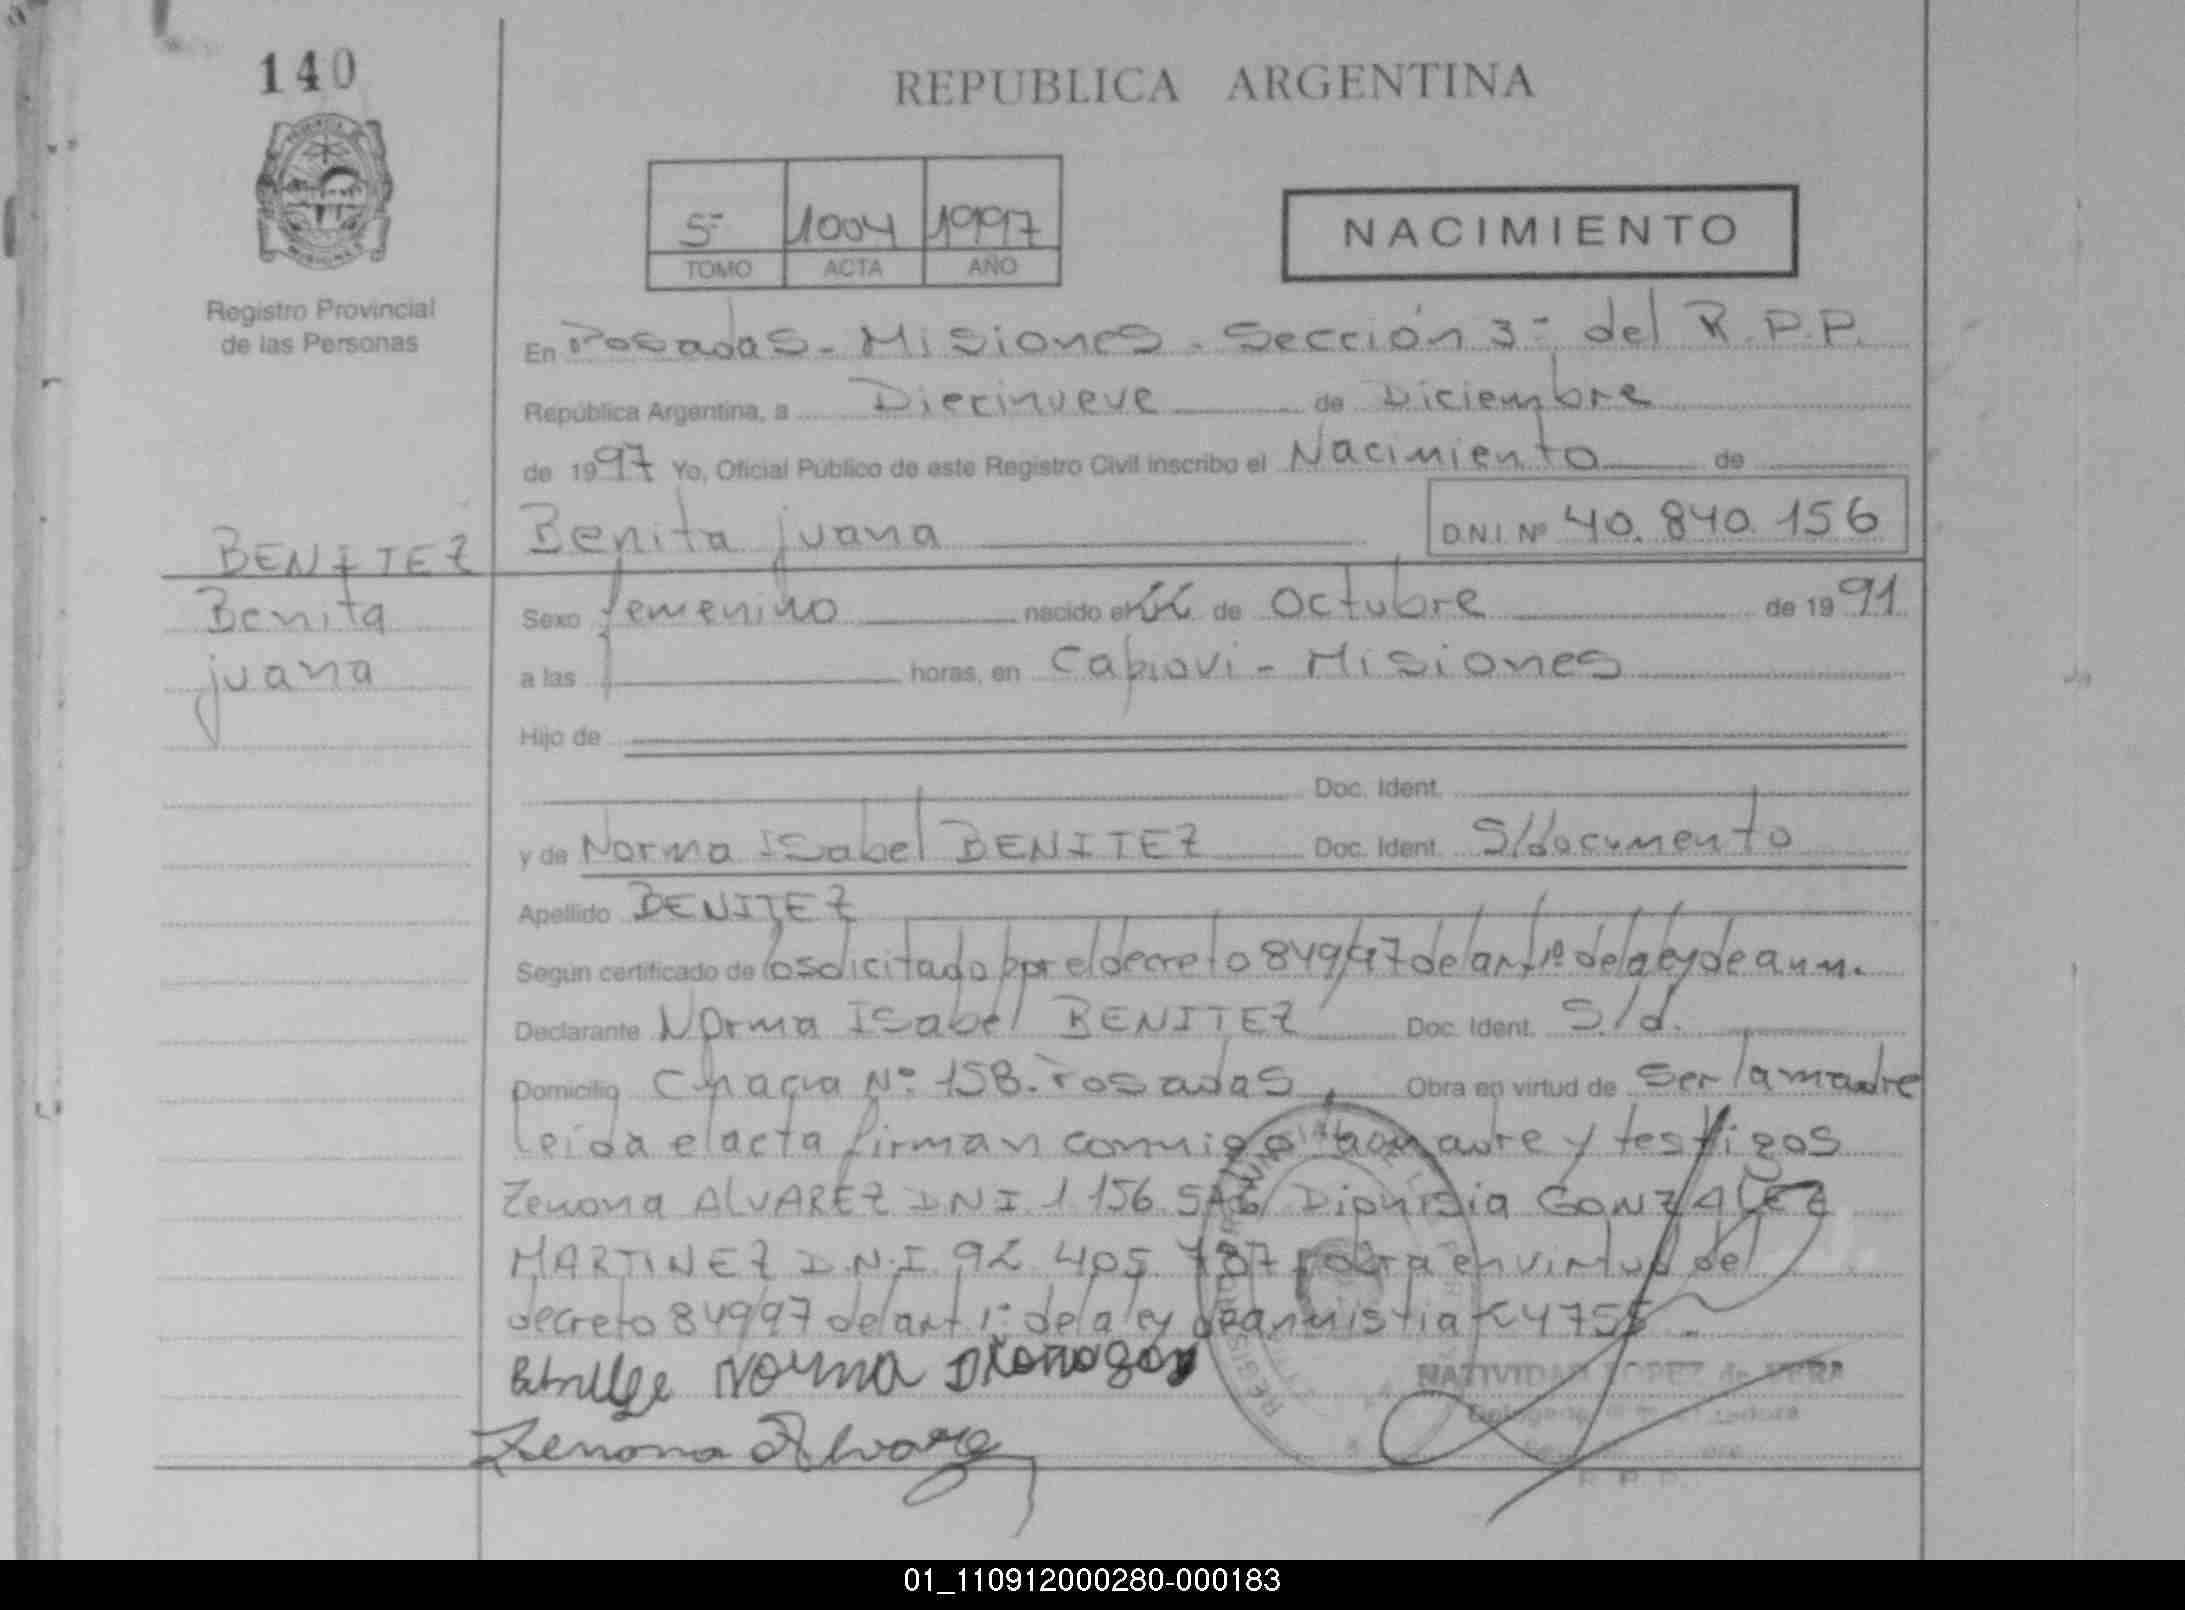 140
REPUBLICA ARGENTINA
5= 1004 1997
TOMO ACTA AÑO
NACIMIENTO
Registro Provincial
de las Personas
En Posadas - Misiones - Sección 3= del R.P.P.
República Argentina, a Diecinueve de Diciembre
de 1997 Yo, Oficial Público de este Registro Civil inscribo el Nacimiento de
Benita juana D.N.I. Nº 40.840.156
BENITEZ
Benita
juana
Sexo femenino nacido el de Octubre de 1991
a las horas, en Capiovi - Misiones
Hijo de
Doc. Ident.
y de Norma Isabel BENITEZ Doc. Ident. S/documento
Apellido BENITEZ
Según certificado de lo solicitado por el decreto 849/97 del art 1º de la ley de amn.
Declarante Norma Isabel BENITEZ Doc. Ident. S./d.
Domicilio Chacra Nº 158. Posadas Obra en virtud de ser la madre
Leida el acta firman conmigo la madre y testigos
Zenona ALVAREZ D N I 1.156. Dionisia GONZALEZ
MARTINEZ D.N.I. 92.405.787 obra en virtud del
decreto 849/97 del art. 1º de la ley de amnistia 24755.
Norma
Zenona Alvarez
NATIVIDAD LOPEZ de
R. P. P.
01_110912000280-000183